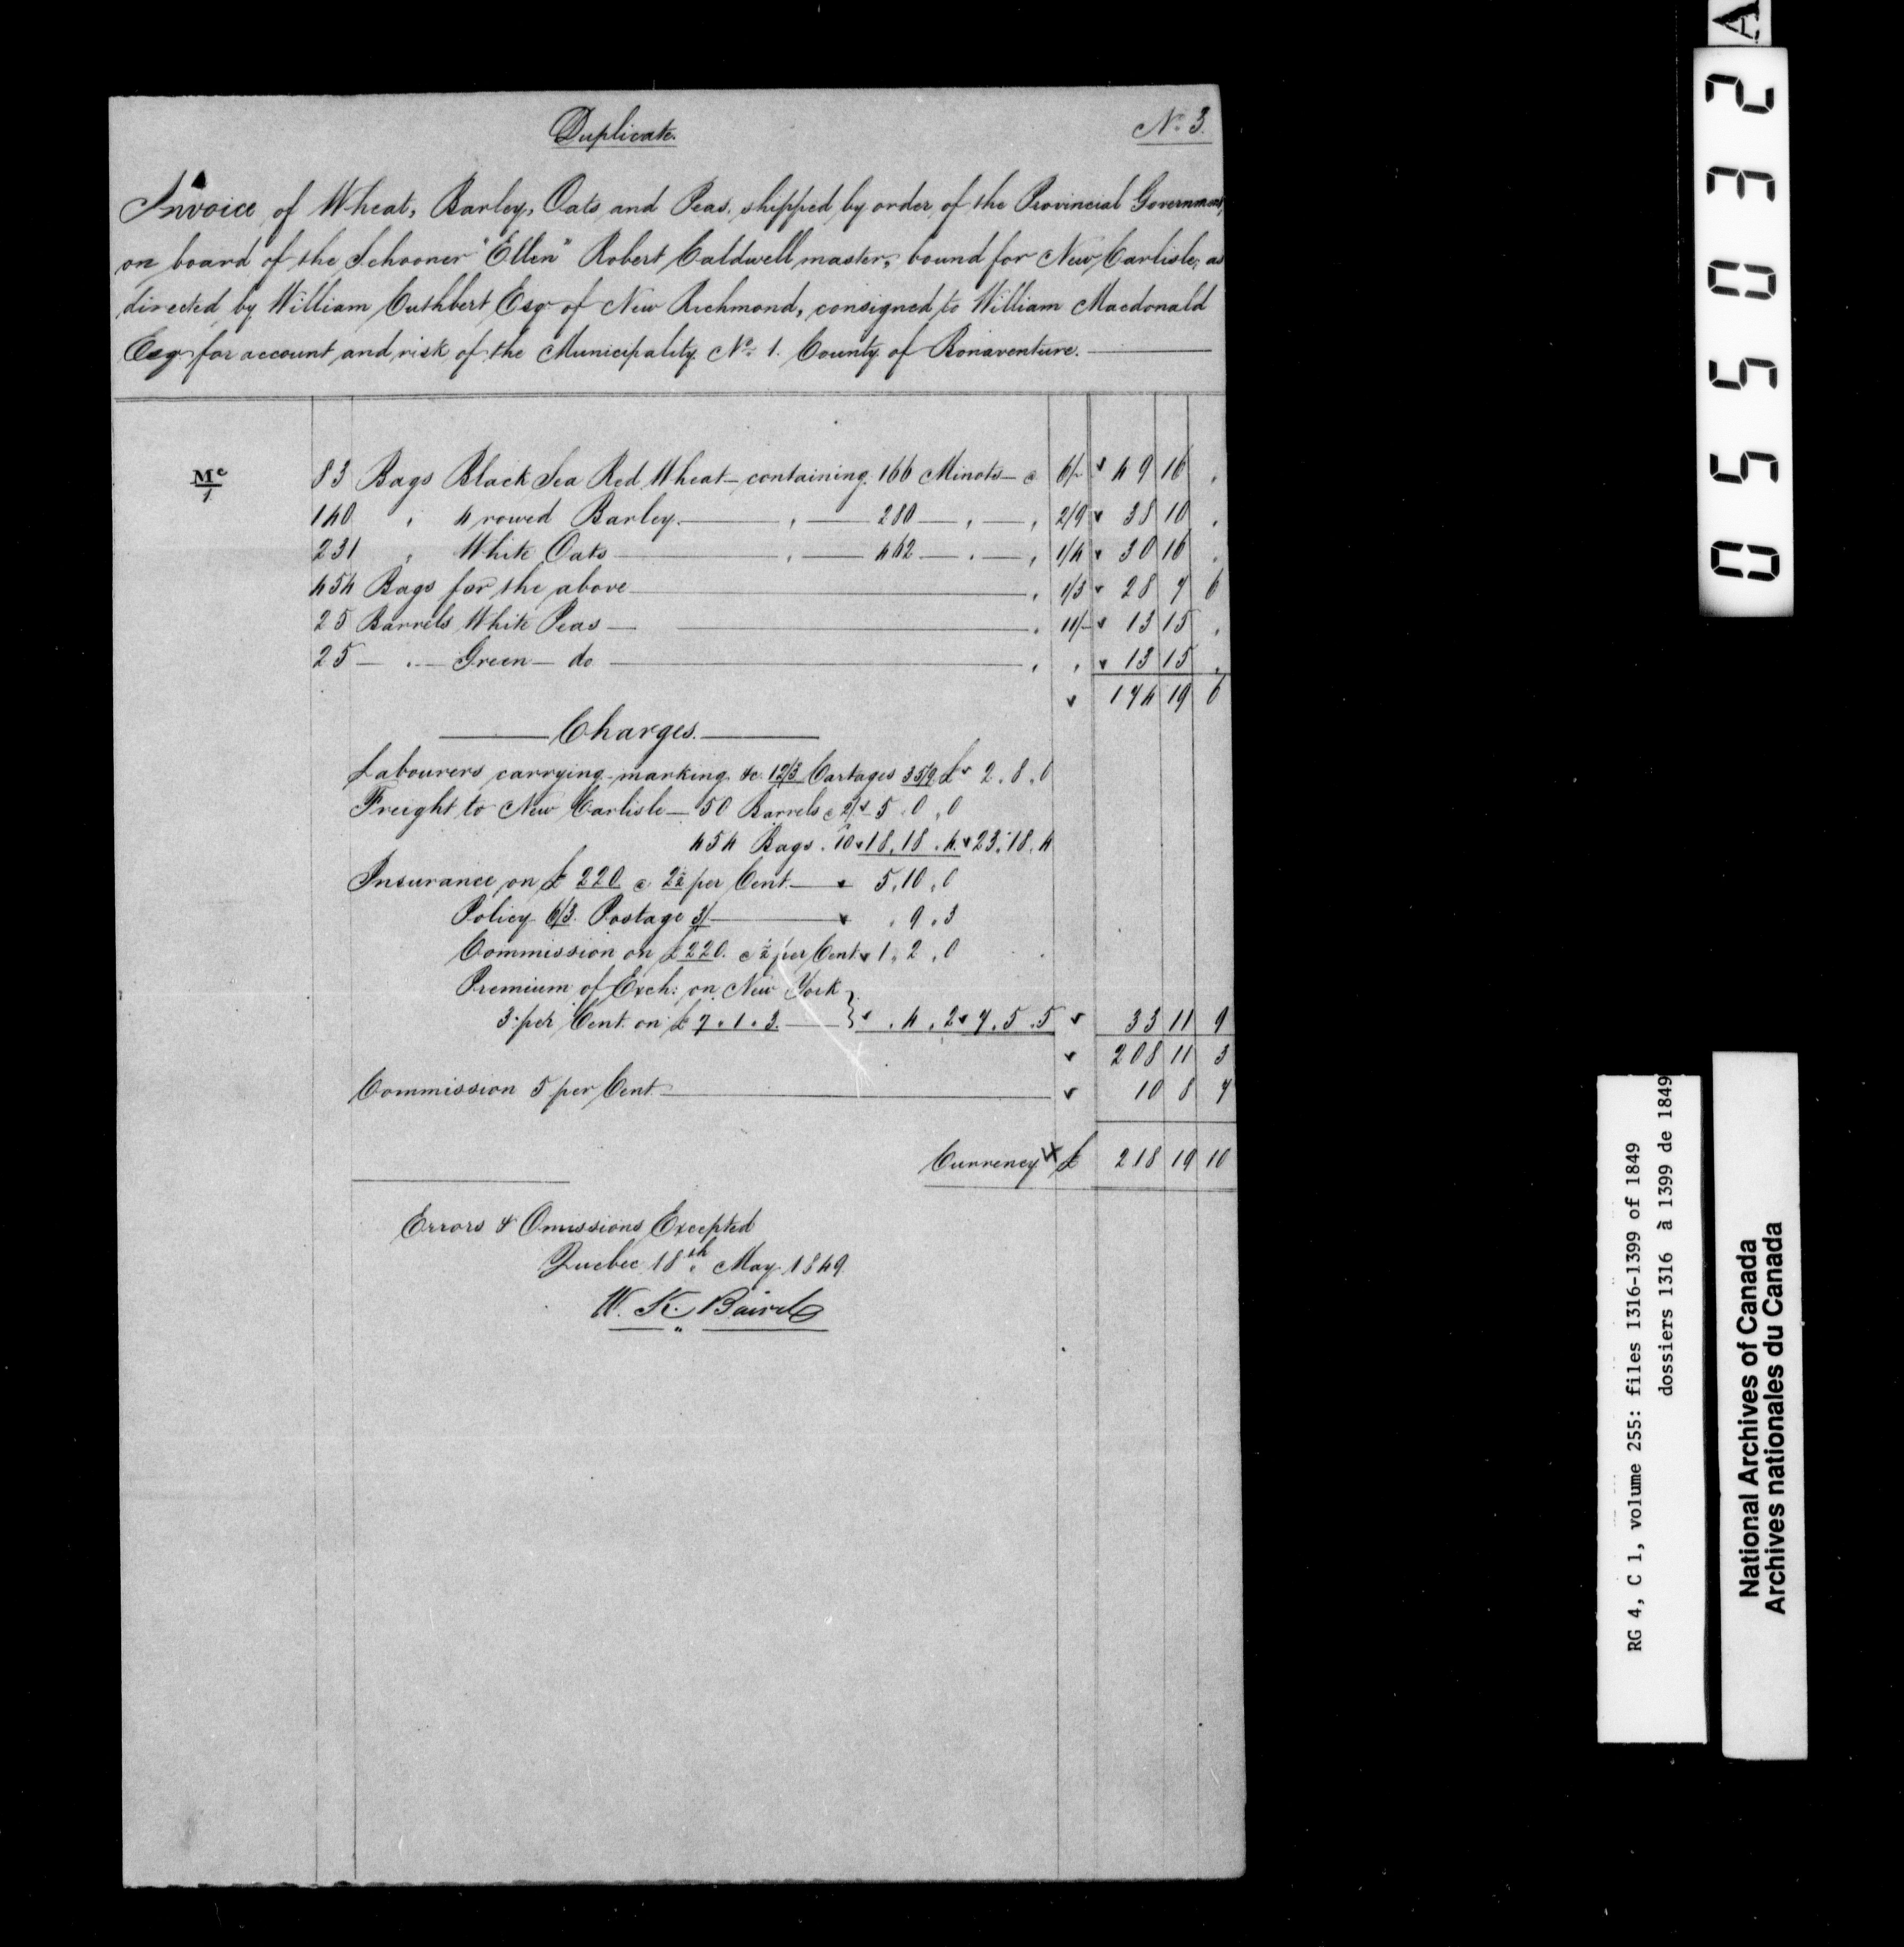 Duplicate.
No. 3.
Invoice of Wheat, Barley, Oats and Peas, shipped by order of the Provincial Government,
on board of the Schooner "Ellen" Robert Caldwell master, bound for New Carlisle, as
directed by William Cuthbert Esqr of New Richmond, consigned to William Macdonald
Esqr for account and risk of the Municipality No. 1. County of Bonaventure.
Mc/1 83 Bags Black Sea Red Wheat - containing 166 Minots - @ 6/- 49 16 "
140 " 4 rowed Barley " 280 " " 2/9 38 10 "
231 " White Oats " 462 " " 1/4 30 16 "
454 Bags for the above " 1/3 28 7 6
25 Barrels White Peas " 11/- 13 15 "
25 " Green do " " 13 15 "
174 19 6
Charges.
Labourers carrying marking &c. 12/3 Cartages 35/9. £ 2 . 8 . 0
Freight to New Carlisle - 50 Barrels @ 2/- 5 . 0 . 0
454 Bags . 10 18 . 18 . 4 . 23 . 18 . 4
Insurance on £ 220 @ 2½ per Cent 5 . 10 . 0
Policy 6/3 Postage 3/ " 9 . 3
Commission on £220. @ ½ per Cent 1 . 2 . 0
Premium of Exch: on New York
3 per Cent on £ 7 . 1 . 3. } . 4 . 2 7 . 5 . 5 33 11 9
208 11 3
Commission 5 per Cent 10 8 7
Currency £ 218 19 10
Errors & Omissions Excepted
Quebec 18th May 1849
W. K. Baird
A
05503 2
RG 4, C 1, volume 255: files 1316-1399 of 1849
dossiers 1316 à 1399 de 1849
National Archives of Canada
Archives nationales du Canada